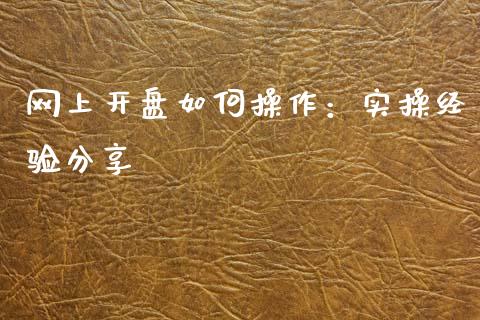 网上开盘如何操作：实操经
验分享